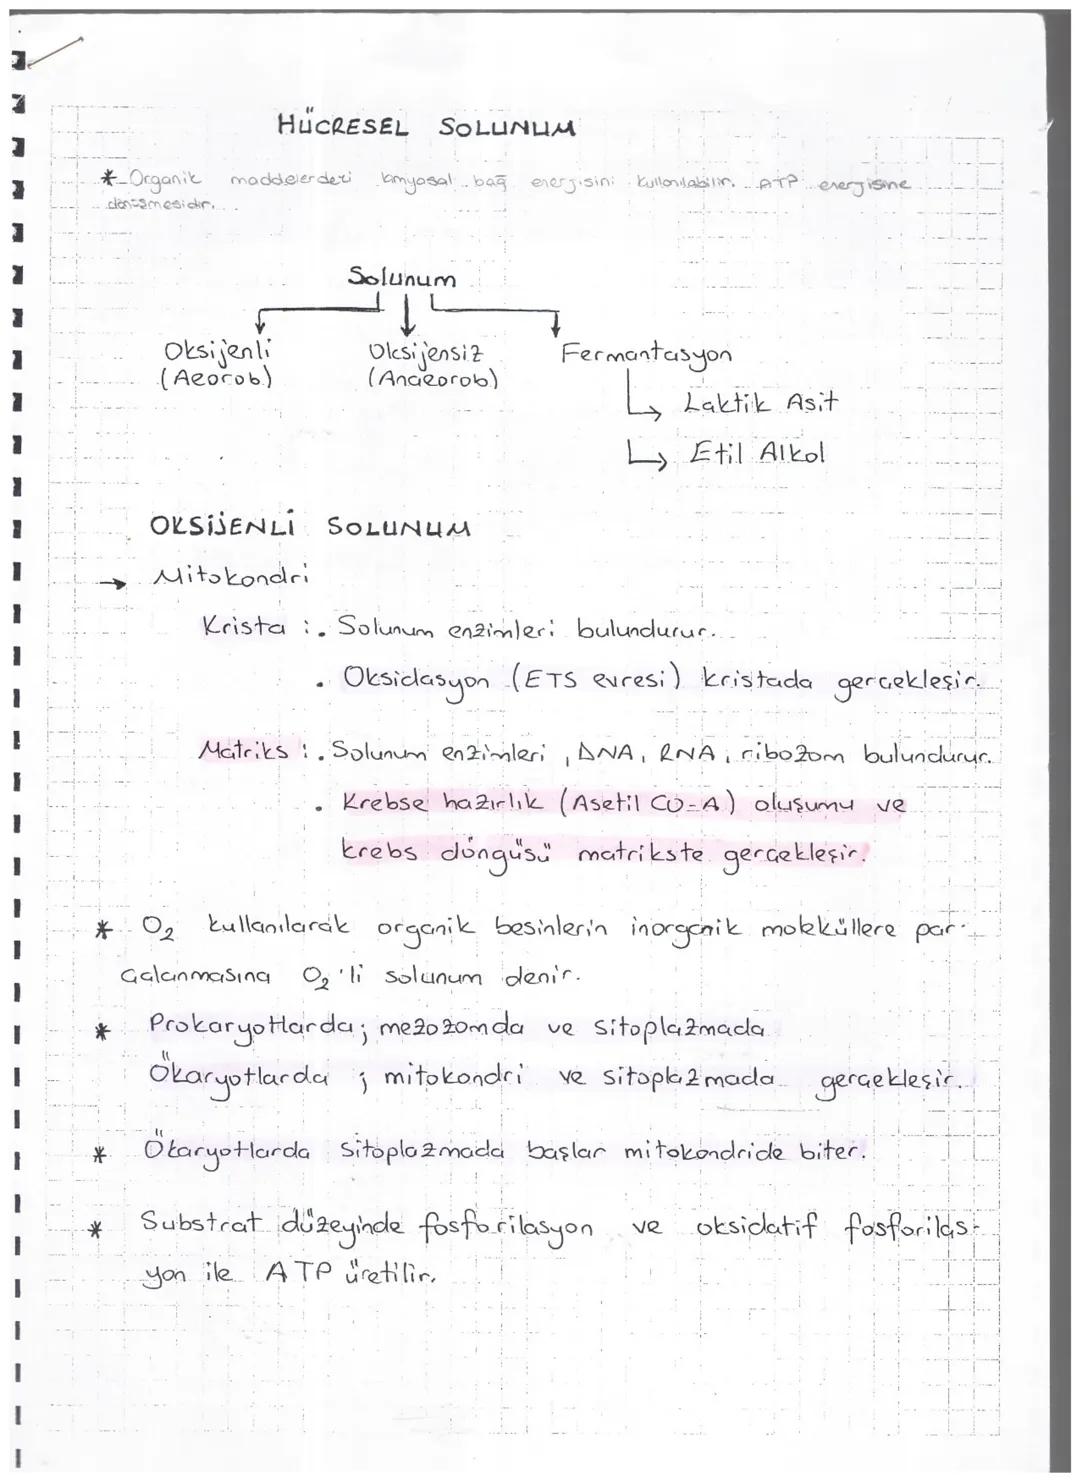 HÜCRESEL SOLUNUM
* Organik maddelerdeki kimyasal bağ enerjisini kullanılabilir ATP enerjisine
dönüşmesidir.
Solunum
Oksijenli Oksijensiz Fermantasyon
(Aeorob) (Anaeorob)
↳ Laktik Asit
↳ Etil Alkol
OKSİJENLİ SOLUNUM
→ Mitokondri
Krista : . Solunum enzimleri bulundurur.
. Oksidasyon (ETS evresi) kristada gerçekleşir.
Matriks : . Solunum enzimleri, DNA, RNA, ribozom bulundurur.
. Krebse hazırlık (Asetil CO-A) oluşumu ve
krebs döngüsü matrikste gerçekleşir.
* O₂ kullanılarak organik besinlerin inorganik moleküllere par-
çalanmasına O₂'li solunum denir.
* Prokaryotlarda; mezozomda ve sitoplazmada
Ökaryotlarda ; mitokondri ve sitoplazmada gerçekleşir.
* Ökaryotlarda sitoplazmada başlar mitokondride biter.
* Substrat düzeyinde fosforilasyon ve oksidatif fosforilas-
yon ile ATP üretilir.